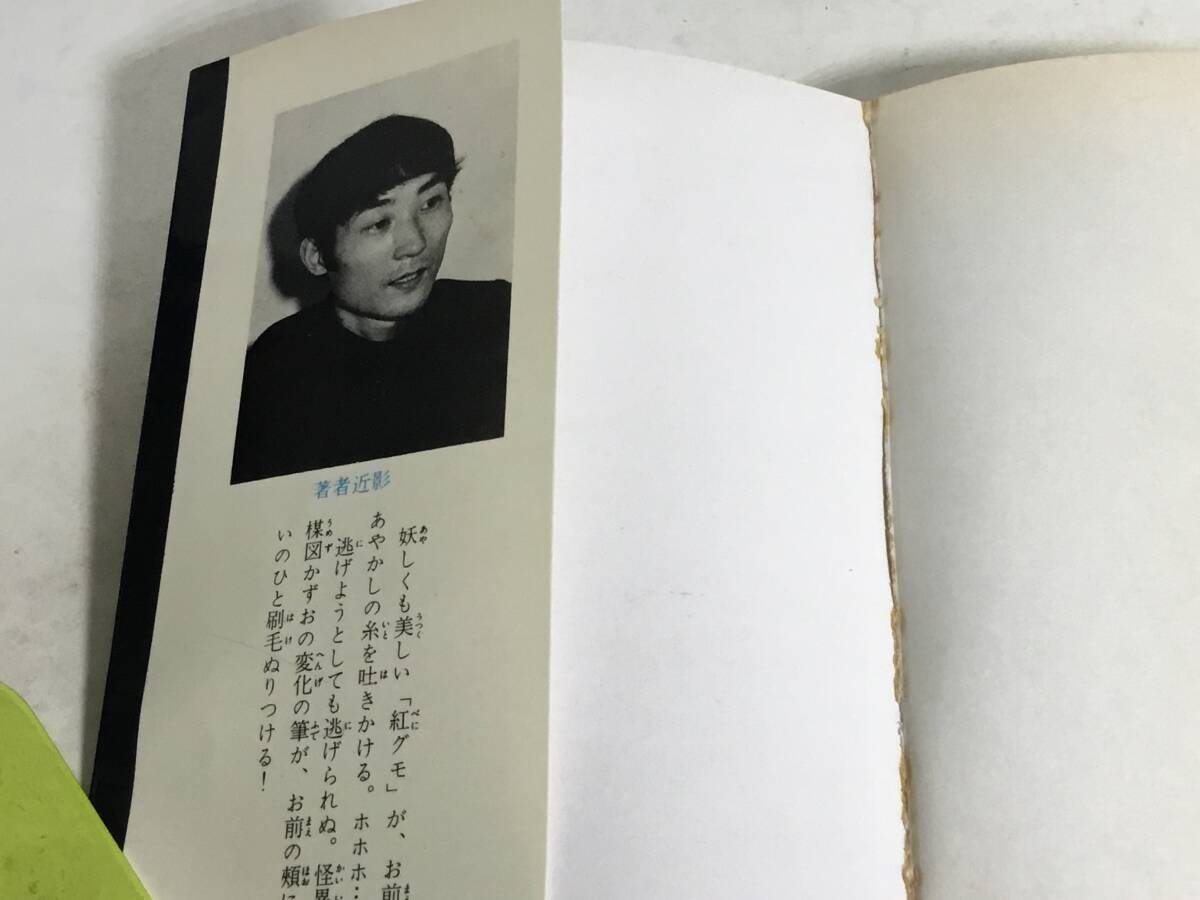 著者近影
妖しくも美しい「紅グモ」が、お前
あやかしの糸を吐きかける。ホホホ…
逃げようとしても逃げられぬ。怪異
楳図かずおの変化の筆が、お前の頬に
いのひと刷毛ぬりつける！